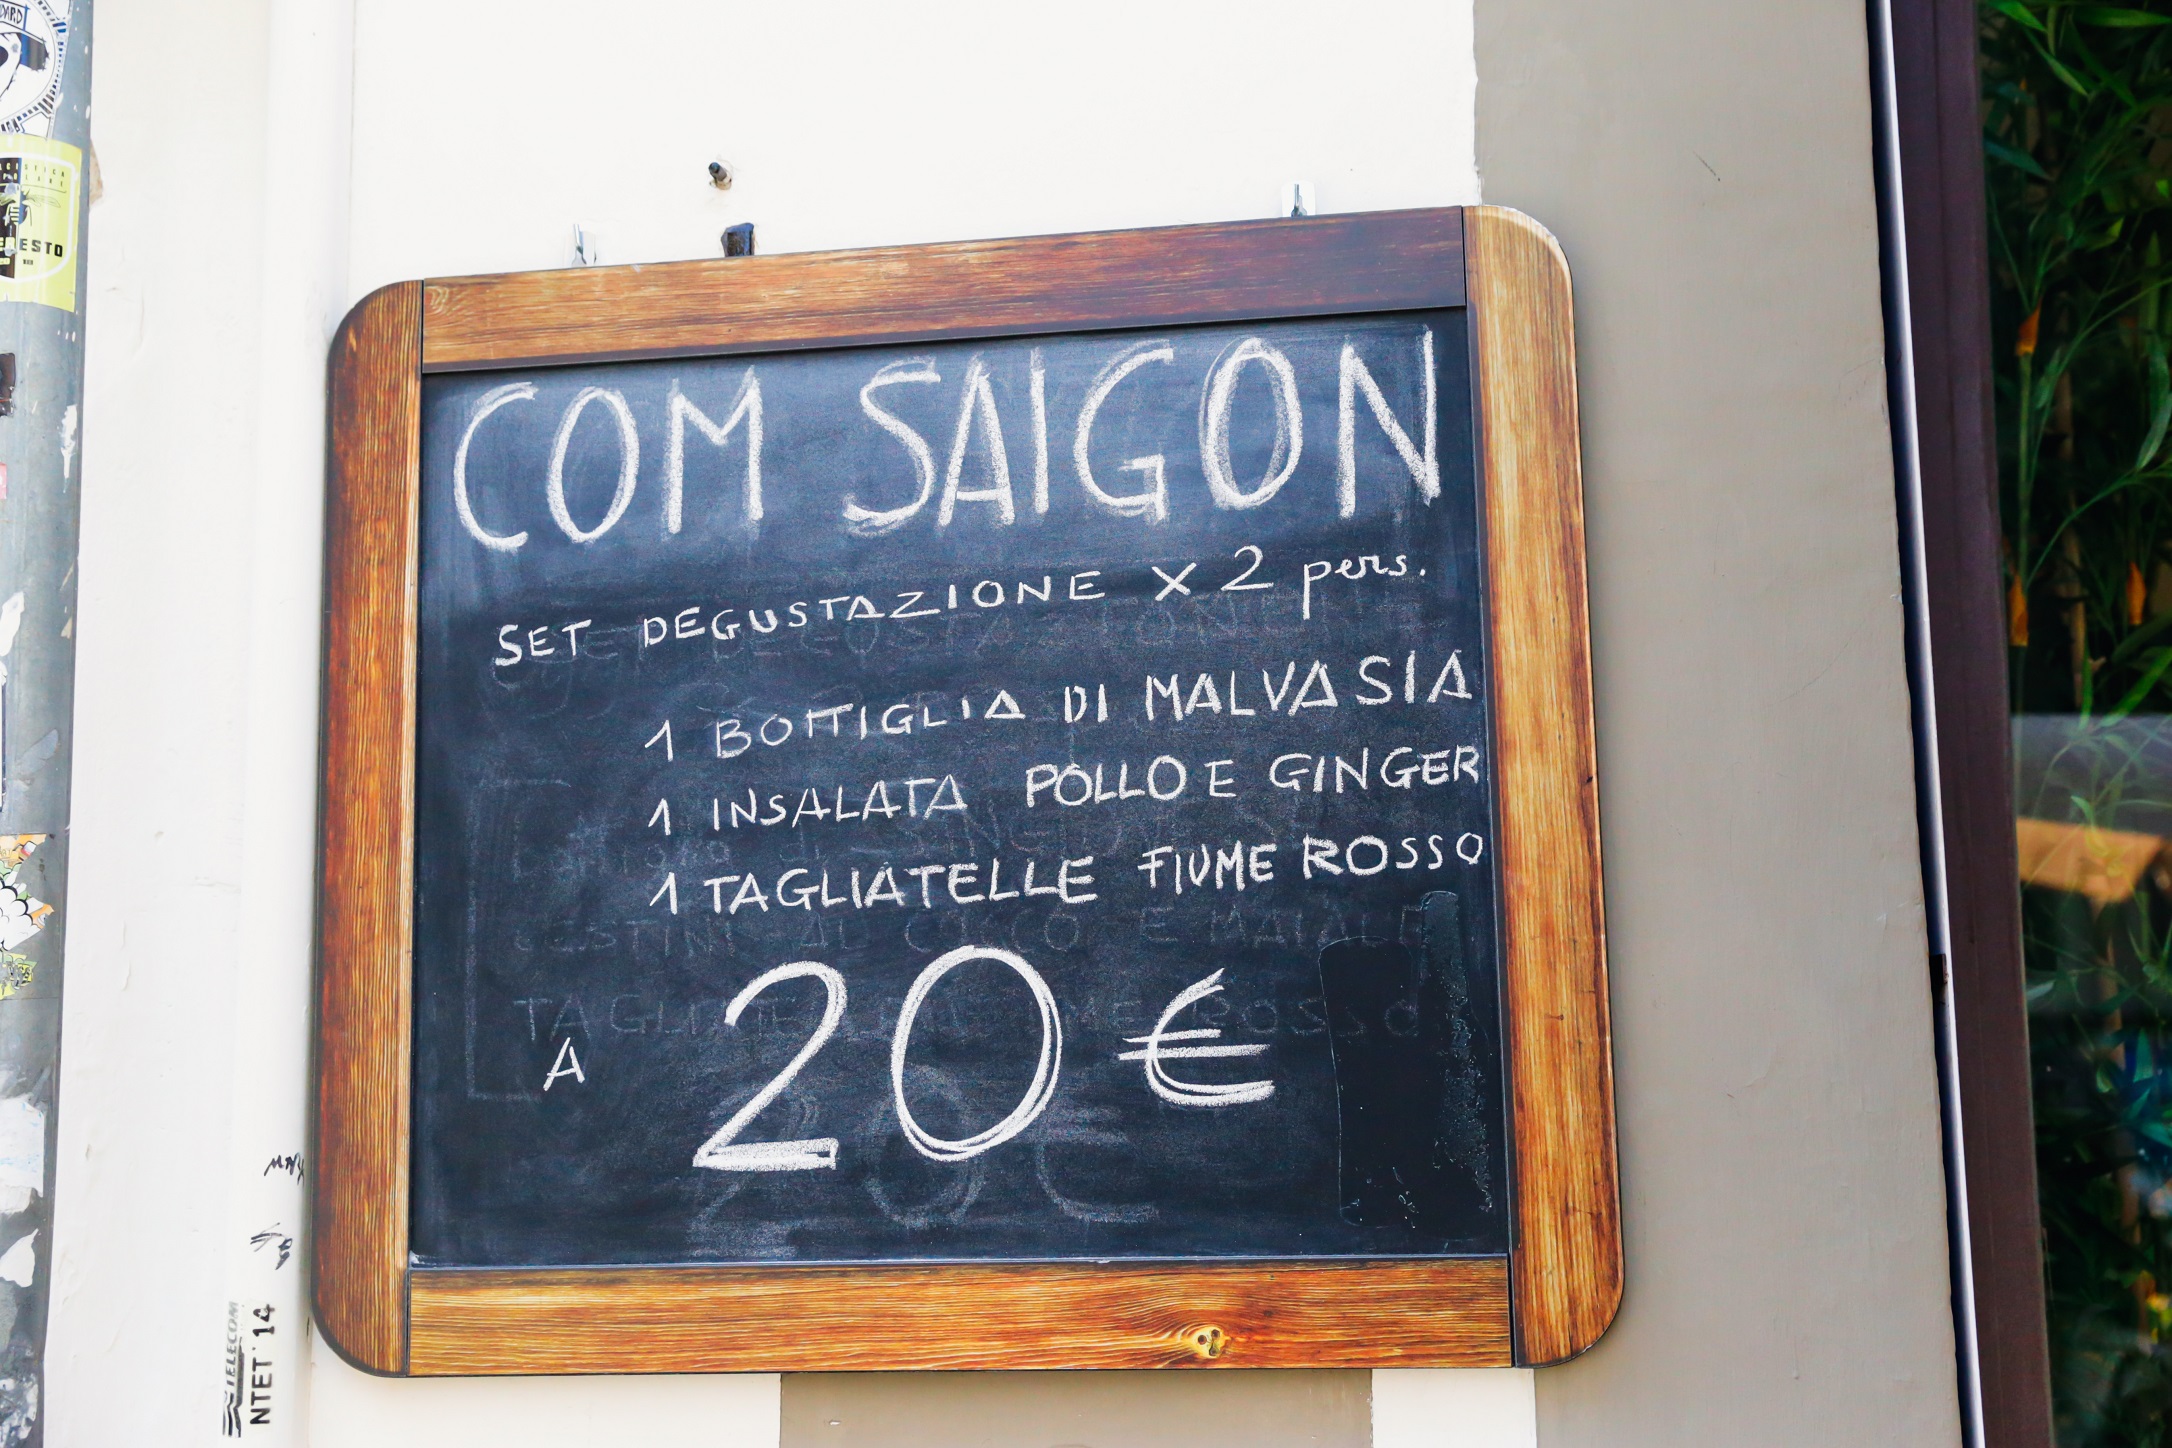 COM SAIGON
SET DEGUSTAZIONE X 2 pers.
1 BOTTIGLIA DI MALVASIA
1 INSALATA POLLO E GINGER
1 TAGLIATELLE FIUME ROSSO
A 20 €
TELECOM
NTET'14